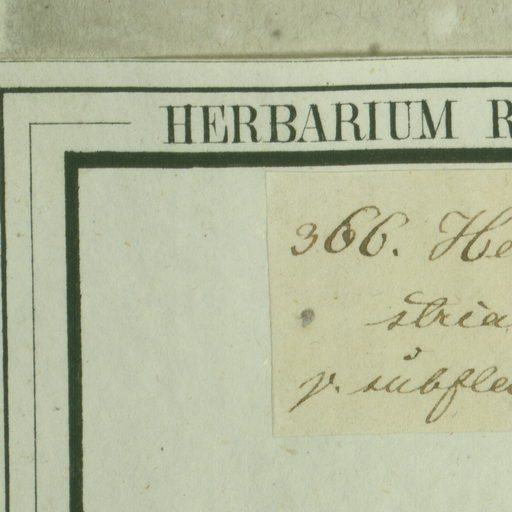 HERBARIUM R
366. He
stria
v. subfle